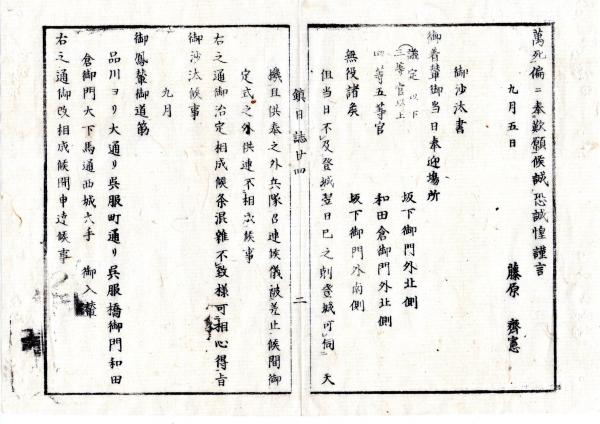 萬死偏ニ奉歎願候誠恐誠惶謹言
九月五日
藤原 齊憲
御沙汰書
御着輦御当日奉迎場所
議定以下
三等官以上
坂下御門外北側
四等五等官
和田倉御門外北側
無役諸矦
坂下御門外南側
但当日不及登城翌日巳之刻登城可伺 天
鎮日誌廿四
二
機且供奉之外兵隊召連候儀被差止候間御
定式之外供連不相成候事
右之通御治定相成候条混雜不致様可相心得旨
御沙汰候事
九月
御鳳輦御道筋
品川ヨリ大通リ呉服町通リ呉服橋御門和田
倉御門大下馬通西城大手 御入輦
右之通御改相成候間申達候事